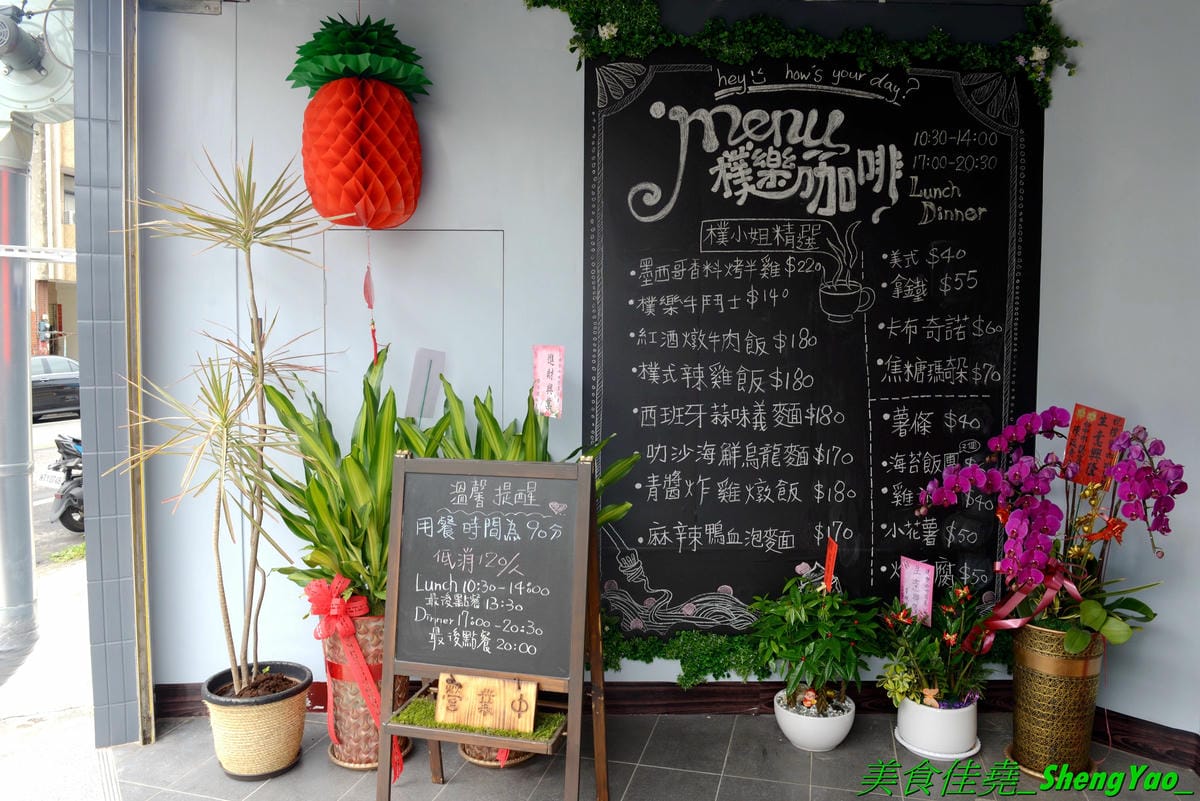 hey how's your day?
menu
樸樂咖啡
10:30-14:00
17:00-20:30
Lunch
Dinner
樸小姐精選
•墨西哥香料烤半雞 $220
•樸樂牛鬥士 $140
•紅酒燉牛肉飯 $180
•樸式辣雞飯 $180
•西班牙蒜味義麵 $180
•叻沙海鮮烏龍麵 $170
•青醬炸雞燉飯 $180
•麻辣鴨血泡麵 $170
•美式 $40
•拿鐵 $55
•卡布奇諾 $60
•焦糖瑪奇朵 $70
•薯條 $40
•海苔飯團 2個
•雞 $40
•小花薯 $50
腐 $50
溫馨提醒
用餐時間為90分
低消120/人
Lunch 10:30-14:00
最後點餐 13:30
Dinner 17:00-20:30
最後點餐 20:00
營業中
生意興隆
美食佳堯_ShengYao_